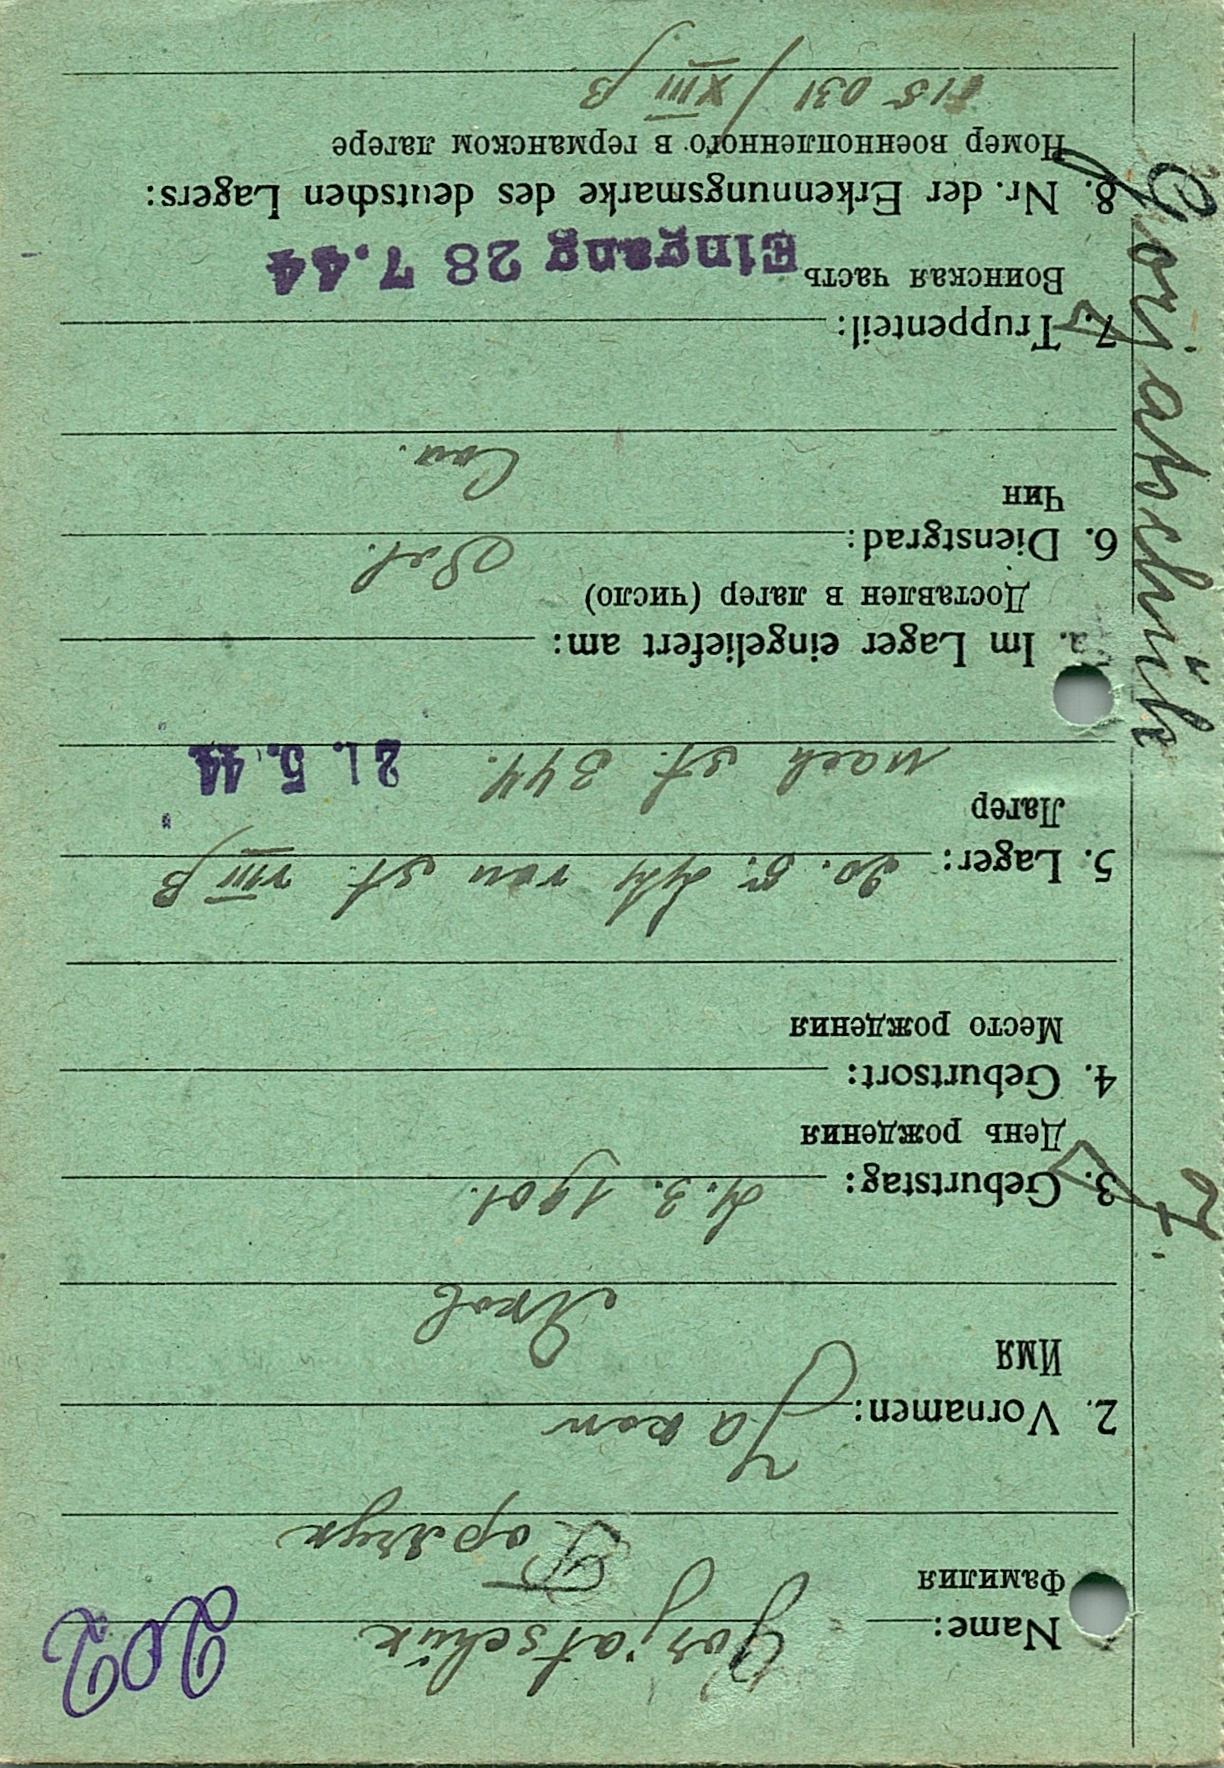 202
Name: Gorjatschük
Фамилия Горячук
2. Vornamen: Jakow
Имя Яков
3. Geburtstag: 4.3.1901.
День рождения
4. Geburtsort:
Место рождения
5. Lager: 20. 5. 44 von St. VIII B
Лагер
nach St. 344. 21. 5. 44
a. Im Lager eingeliefert am:
Доставлен в лагер (число)
6. Dienstgrad: Sol.
Чин
Сол.
7. Truppenteil:
Воинская часть Eingang 28 7.44
8. Nr. der Erkennungsmarke des deutschen Lagers:
Номер военнопленного в германском лагере
115 031 / XIII B
Gorjatschük
J.